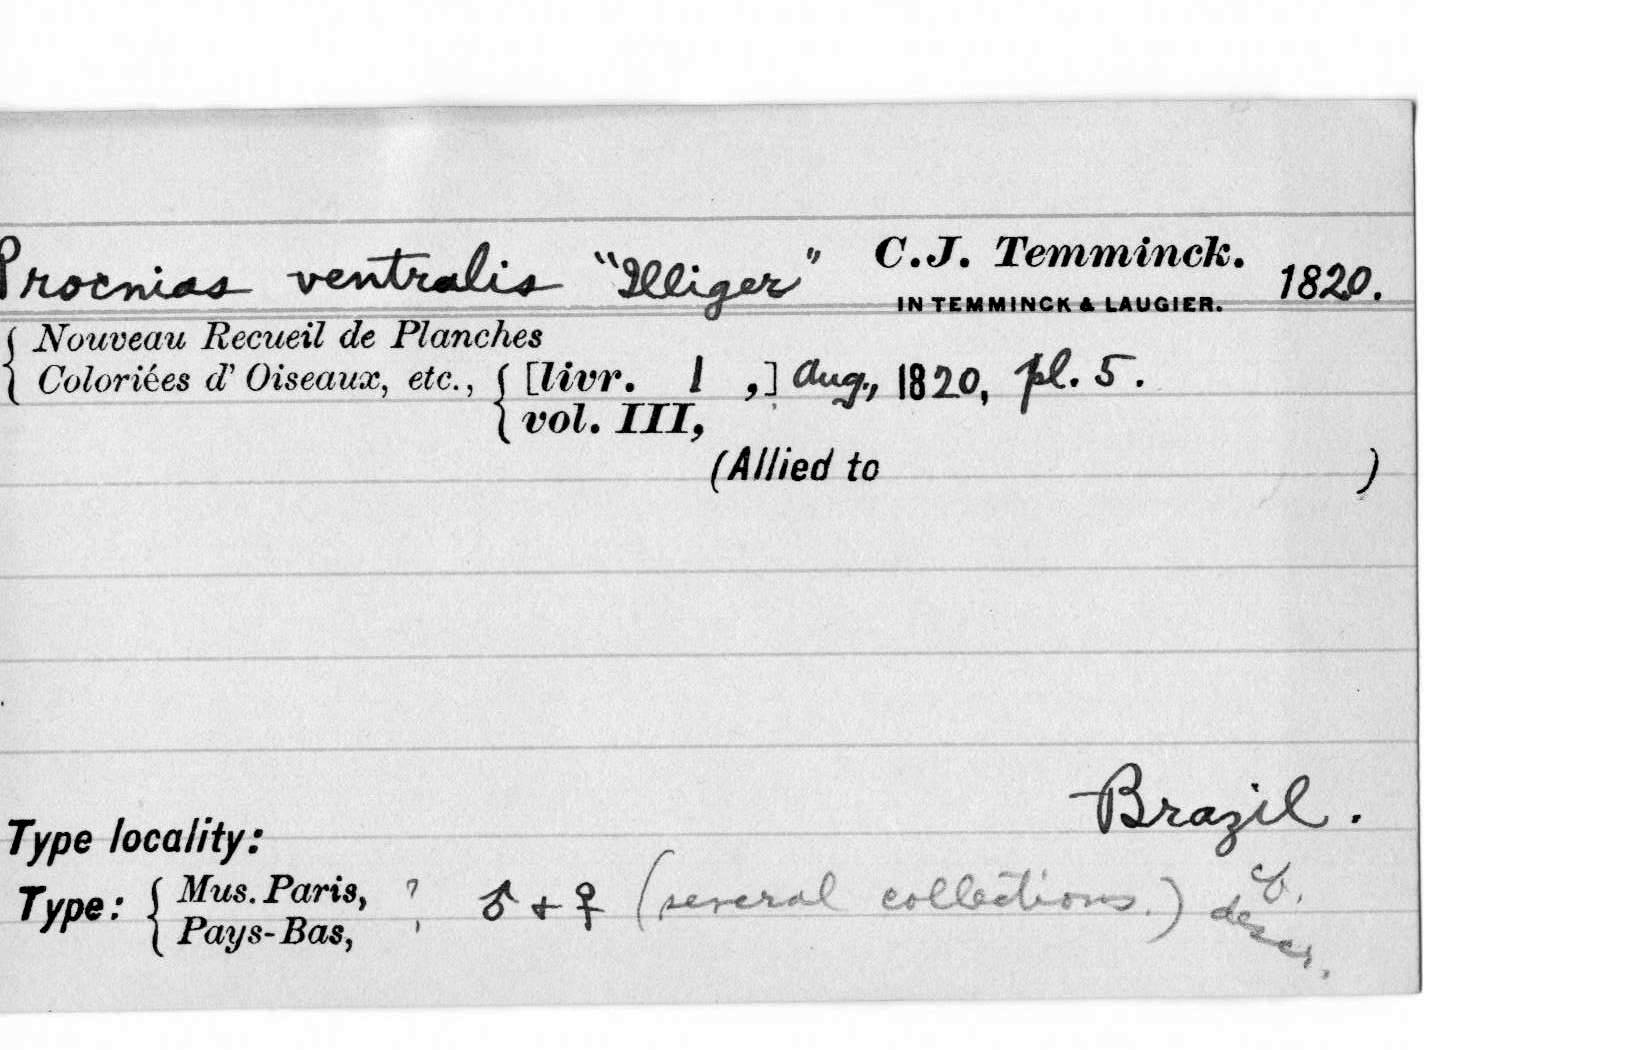 Procnias ventralis "Illiger" C.J. Temminck. 1820.
IN TEMMINCK & LAUGIER.
{ Nouveau Recueil de Planches
Coloriées d' Oiseaux, etc., { [livr. 1 ,] Aug., 1820, pl. 5.
vol. III,
(Allied to )
Brazil.
Type locality:
Type: { Mus. Paris, ? ♂ + ♀ (several collections.)
Pays-Bas,
descr.